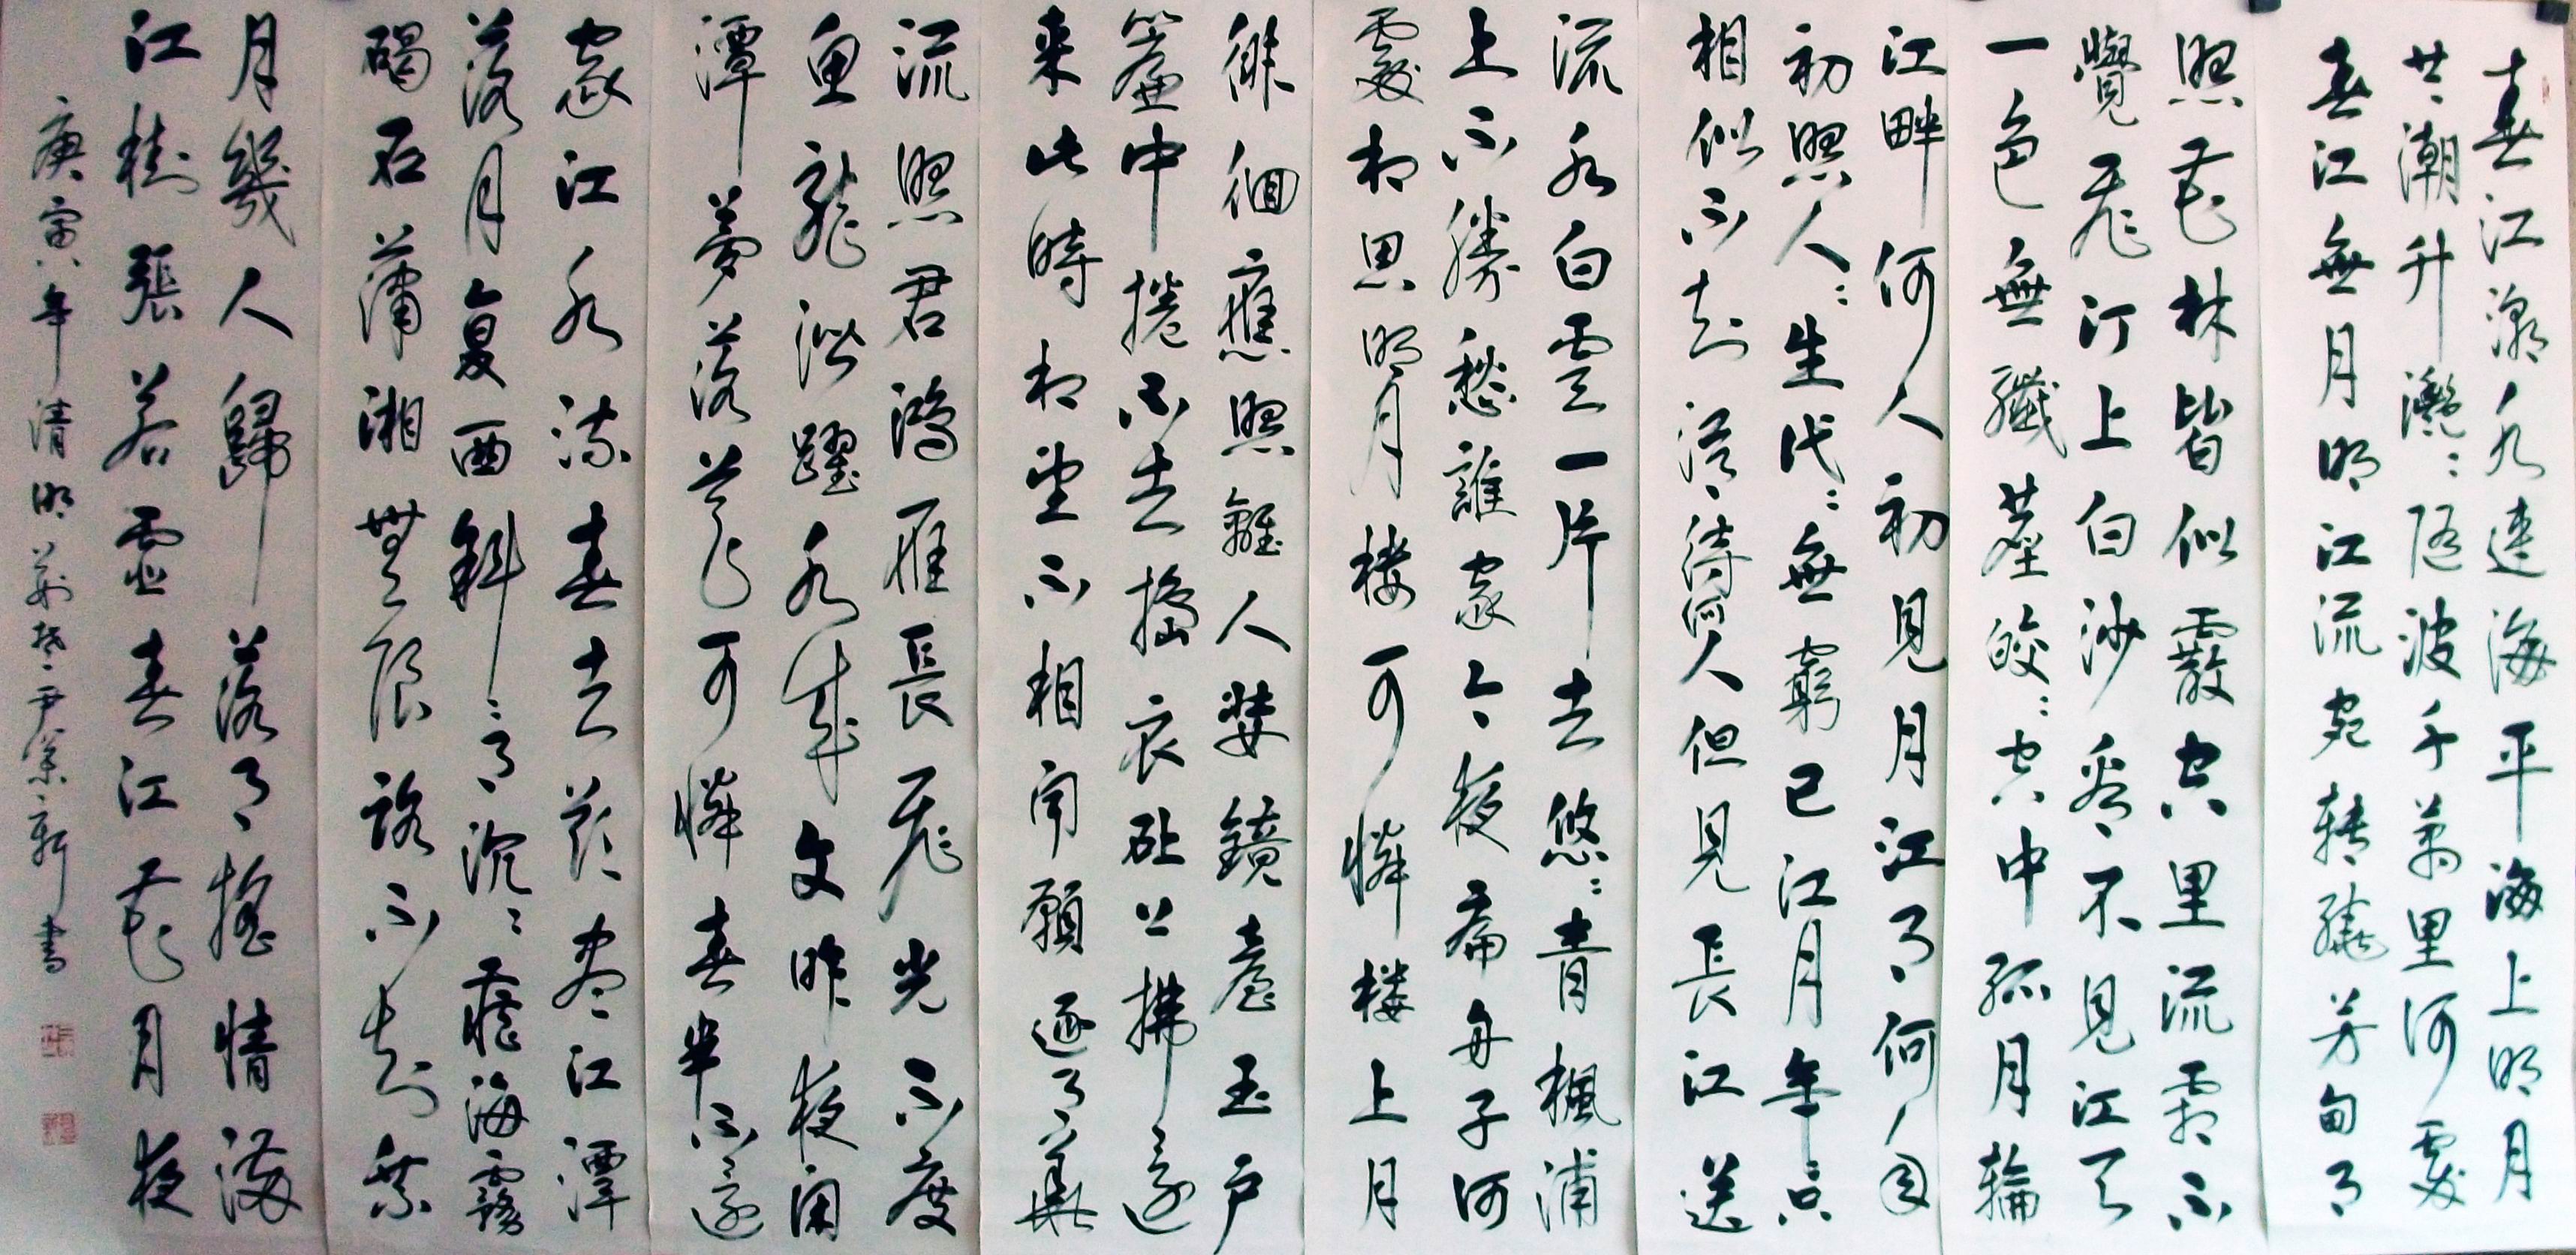 春江潮水連海平海上明月
共潮升灧〻隨波千萬里何處
春江無月明江流宛轉繞芳甸月
照花林皆似霰空里流霜不
覺飛汀上白沙看不見江天
一色無纖塵皎〻空中孤月輪
江畔何人初見月江月何年
初照人〻生代〻無窮已江月年只
相似不知江月待何人但見長江送
流水白雲一片去悠〻青楓浦
上不勝愁誰家今夜扁舟子何
處相思明月楼可憐楼上月
徘徊應照離人妝鏡臺玉戶
簾中捲不去搗衣砧上拂還
來此時相望不相聞願逐月華
流照君鴻雁長飛光不度
魚龍潛躍水成文昨夜閑
潭夢落花可憐春半不還
家江水流春去欲盡江潭
落月复西斜〻月沉〻藏海霧
碣石瀟湘無限路不知乘
月幾人歸落月搖情滿
江樹張若虛春江花月夜
庚寅年清明荊楚尹業新書